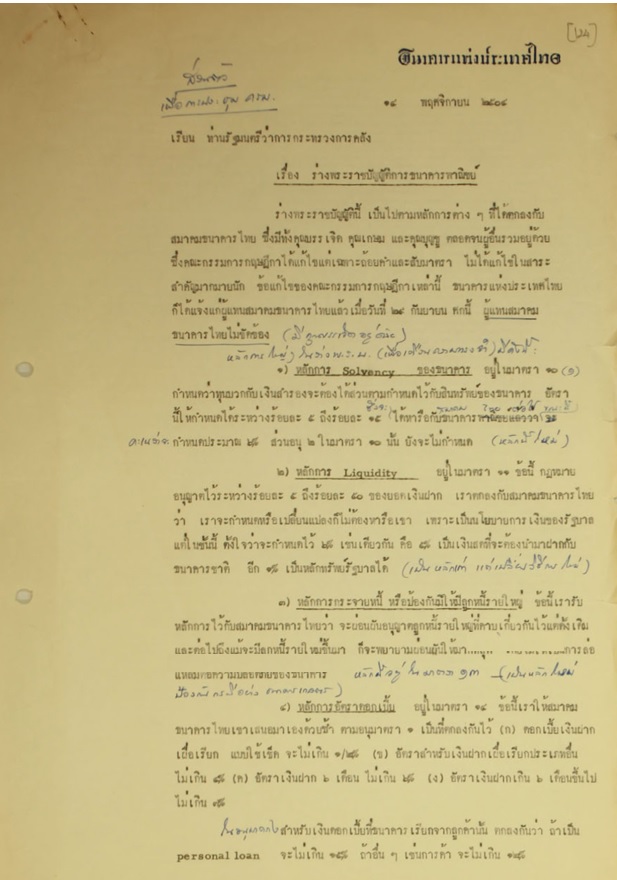 [๒๘]
ธนาคารแห่งประเทศไทย
ส่วนตัว
เพื่อการประชุม ครม.
๑๔ พฤศจิกายน ๒๕๐๔
เรียน ท่านรัฐมนตรีว่าการกระทรวงการคลัง
เรื่อง ร่างพระราชบัญญัติการธนาคารพาณิชย์
ร่างพระราชบัญญัตินี้ เป็นไปตามหลักการต่าง ๆ ที่ได้ตกลงกับ
สมาคมธนาคารไทย ซึ่งมีทั้งคุณบรรเจิด คุณเกษม และคุณบุญชู ตลอดจนผู้อื่นรวมอยู่ด้วย
ซึ่งคณะกรรมการกฤษฎีกาได้แก้ไขแต่เฉพาะถ้อยคำและลำดับมาตรา ไม่ได้แก้ไขในสาระ
สำคัญมากมายนัก ข้อแก้ไขของคณะกรรมการกฤษฎีกาเหล่านี้ ธนาคารแห่งประเทศไทย
ก็ได้แจ้งแก่ผู้แทนสมาคมธนาคารไทยแล้วเมื่อวันที่ ๒๘ กันยายน ศกนี้ ผู้แทนสมาคม
ธนาคารไทยไม่ขัดข้อง (มีคุณบรรเจิดอยู่ด้วย)
หลักการใหญ่ๆ ในร่าง พ.ร.บ. มีดังนี้:
๑) หลักการ Solvency ของธนาคาร อยู่ในมาตรา ๑๐ (๑)
กำหนดว่าทุนบวกกับเงินสำรองจะต้องได้ส่วนตามกำหนดไว้กับสินทรัพย์ของธนาคาร อัตรา
นี้ให้กำหนดได้ระหว่างร้อยละ ๕ ถึงร้อยละ ๑๕ ได้หารือกับ
กำหนดประมาณ ๖% ส่วนอนุ ๒ ในมาตรา ๑๐ นั้น ยังจะไม่กำหนด (หลักนี้ใหม่)
๒) หลักการ Liquidity อยู่ในมาตรา ๑๑ ข้อนี้ กฎหมาย
อนุญาตไว้ระหว่างร้อยละ ๕ ถึงร้อยละ ๕๐ ของยอดเงินฝาก เราตกลงกับสมาคมธนาคารไทย
ว่า เราจะกำหนดหรือเปลี่ยนแปลงก็ไม่ต้องหารือเขา เพราะเป็นนโยบายการเงินของรัฐบาล
แต่ในชั้นนี้ ตั้งใจว่าจะกำหนดไว้ ๖% เช่นเดียวกัน คือ ๕% เป็นเงินสดที่จะต้องนำมาฝากกับ
ธนาคารชาติ อีก ๑% เป็นหลักทรัพย์รัฐบาลได้
๓) หลักการกระจายหนี้ หรือป้องกันมิให้มีลูกหนี้รายใหญ่ ข้อนี้เรารับ
หลักการไว้กับสมาคมธนาคารไทยว่า จะผ่อนผันอนุญาตลูกหนี้รายใหญ่ที่คาบเกี่ยวกันไว้แต่ดั้งเดิม
และต่อไปถึงแม้จะมีลูกหนี้รายใหม่ขึ้นมา ก็จะพยายามผ่อนผันให้มา การล่อ
แหลมต่อความปลอดภัยของธนาคาร หลักนี้อยู่ในมาตรา ๑๓ (เป็นหลักใหม่
๔) หลักการอัตราดอกเบี้ย อยู่ในมาตรา ๑๔ ข้อนี้เราให้สมาคม
ธนาคารไทยเขาเสนอมาเองด้วยซ้ำ ตามอนุมาตรา ๑ เป็นที่ตกลงกันไว้ (ก) ดอกเบี้ยเงินฝาก
เผื่อเรียก แบบใช้เช็ค จะไม่เกิน ๑/๒% (ข) อัตราสำหรับเงินฝากเผื่อเรียกประเภทอื่น
ไม่เกิน ๔% (ค) อัตราเงินฝาก ๖ เดือน ไม่เกิน ๖% (ง) อัตราเงินฝากเกิน ๖ เดือนขึ้นไป
ไม่เกิน ๗%
สำหรับเงินดอกเบี้ยที่ธนาคารเรียกจากลูกค้านั้น ตกลงกันว่า ถ้าเป็น
personal loan จะไม่เกิน ๑๕% ถ้าอื่น ๆ เช่นการค้า จะไม่เกิน ๑๒%